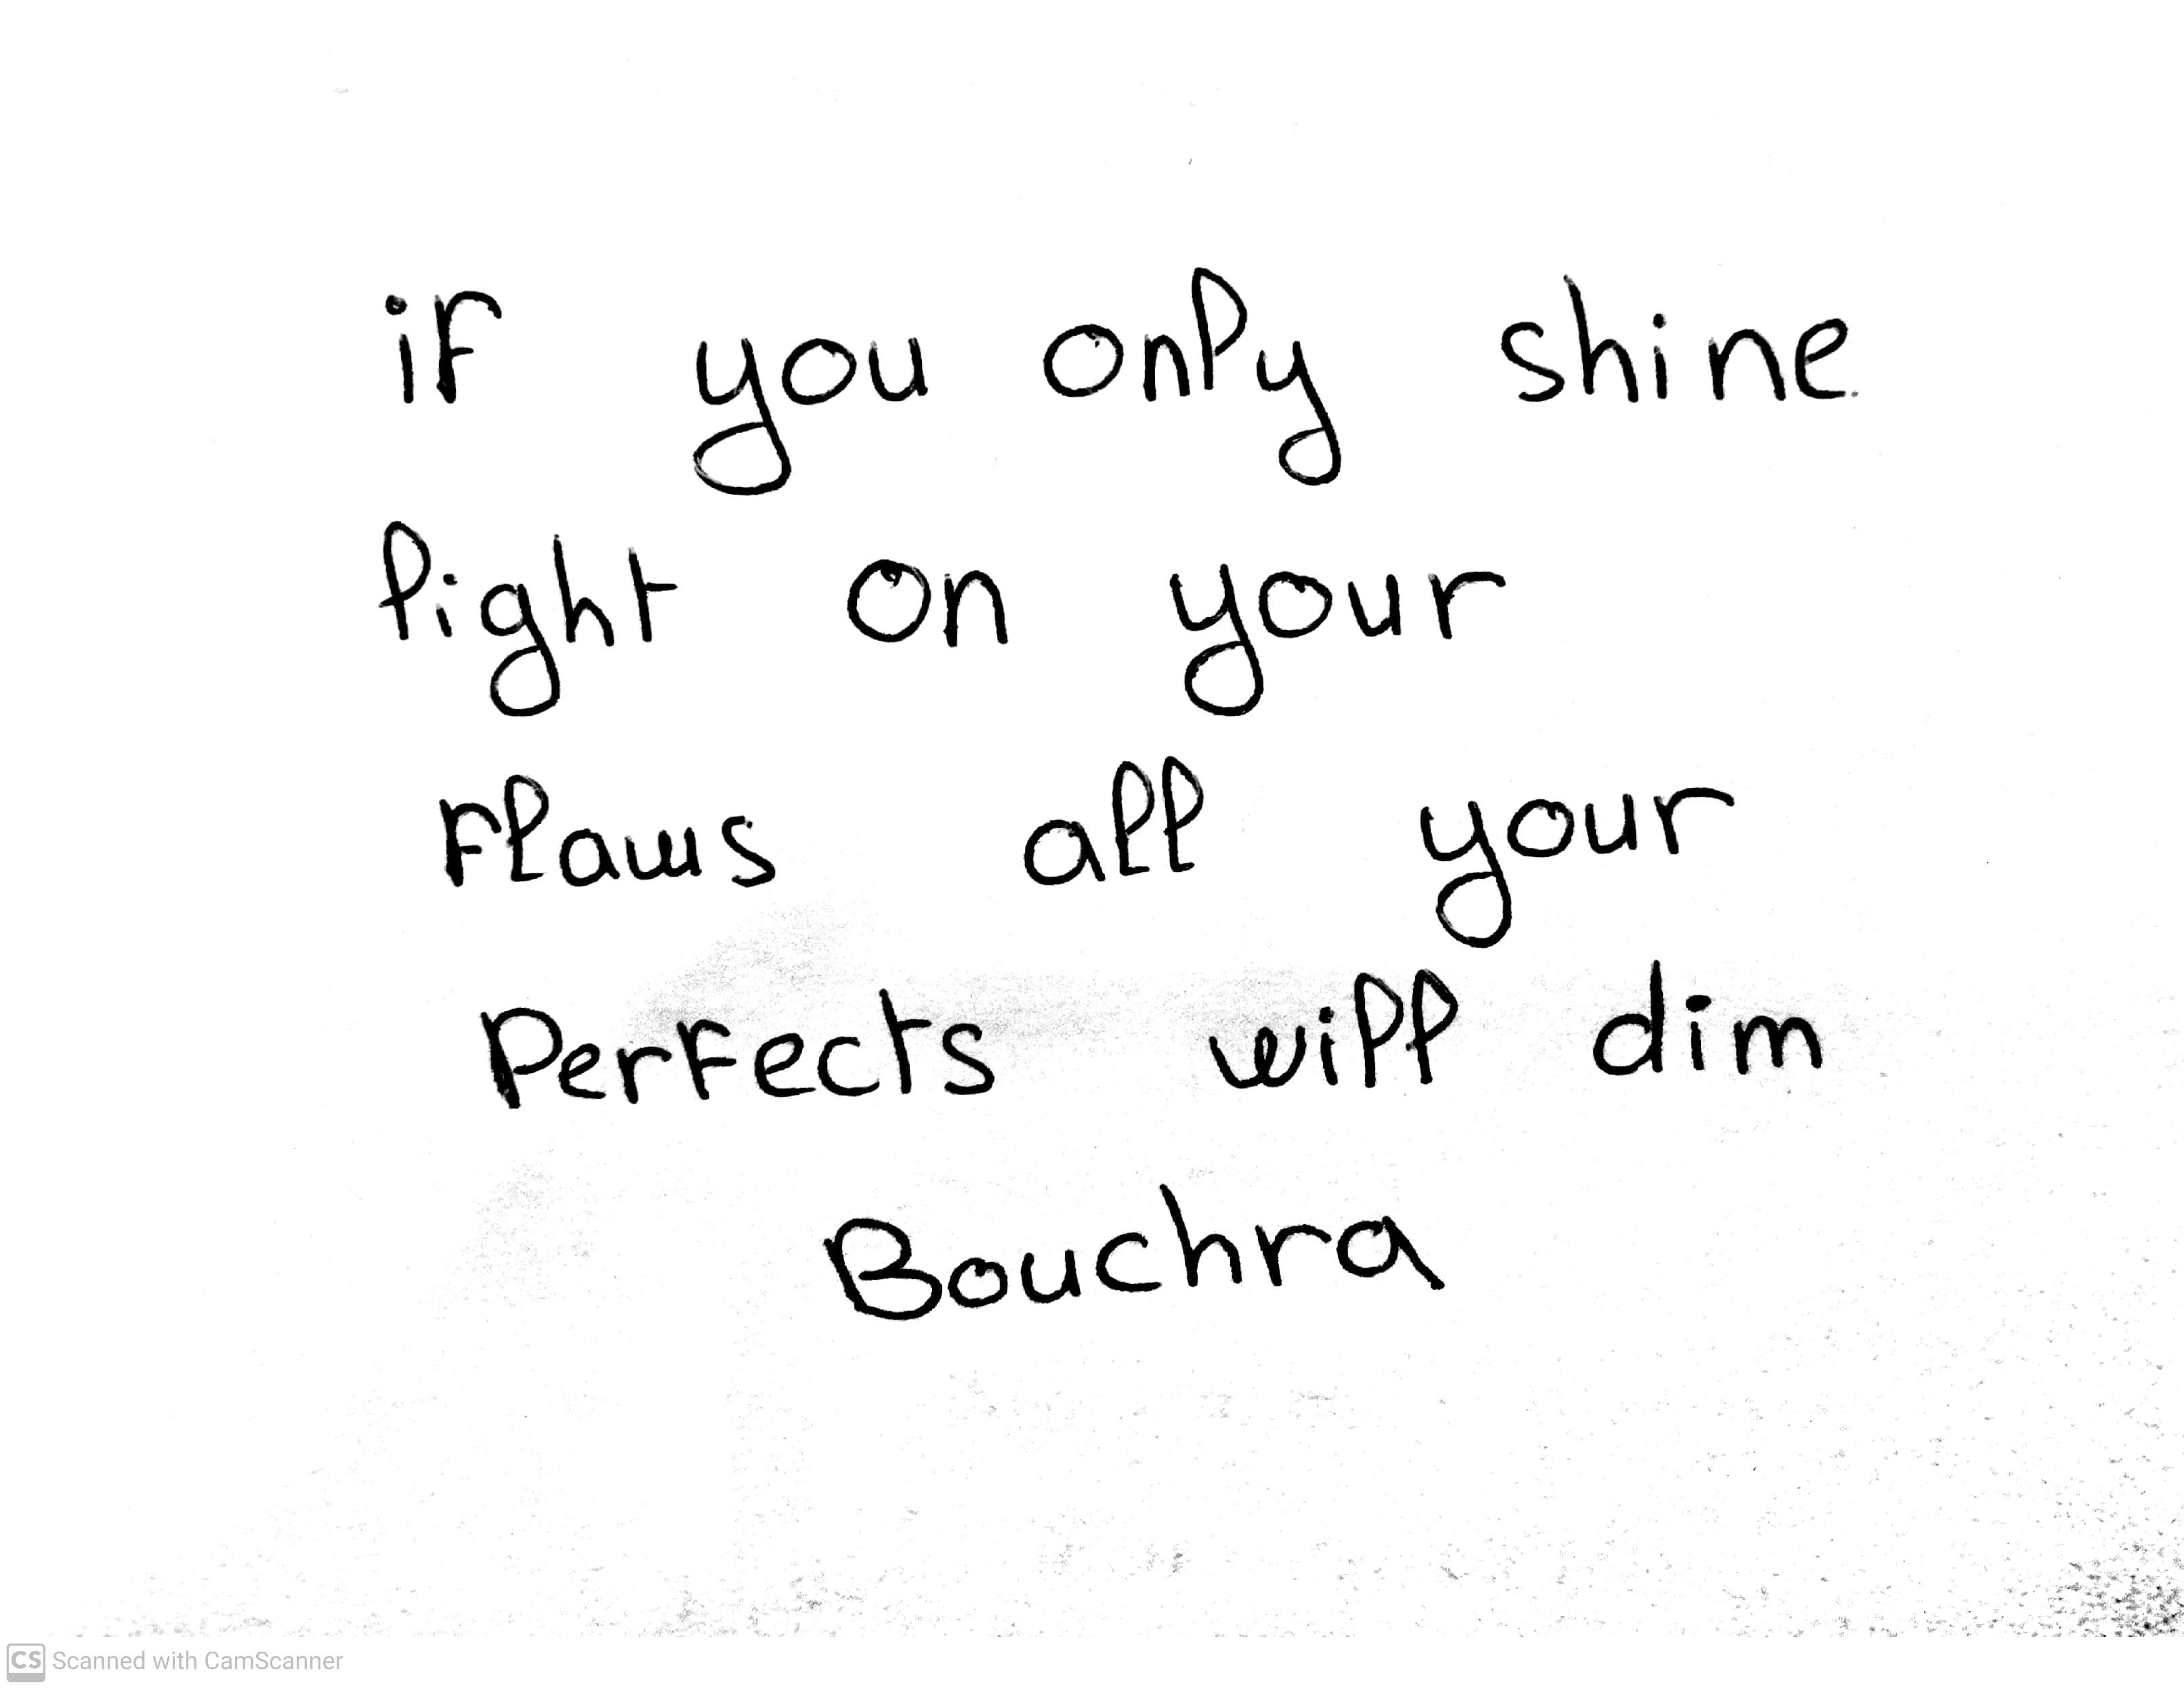 if you only shine
light on your
flaws all your
Perfects will dim
Bouchra
CS Scanned with CamScanner